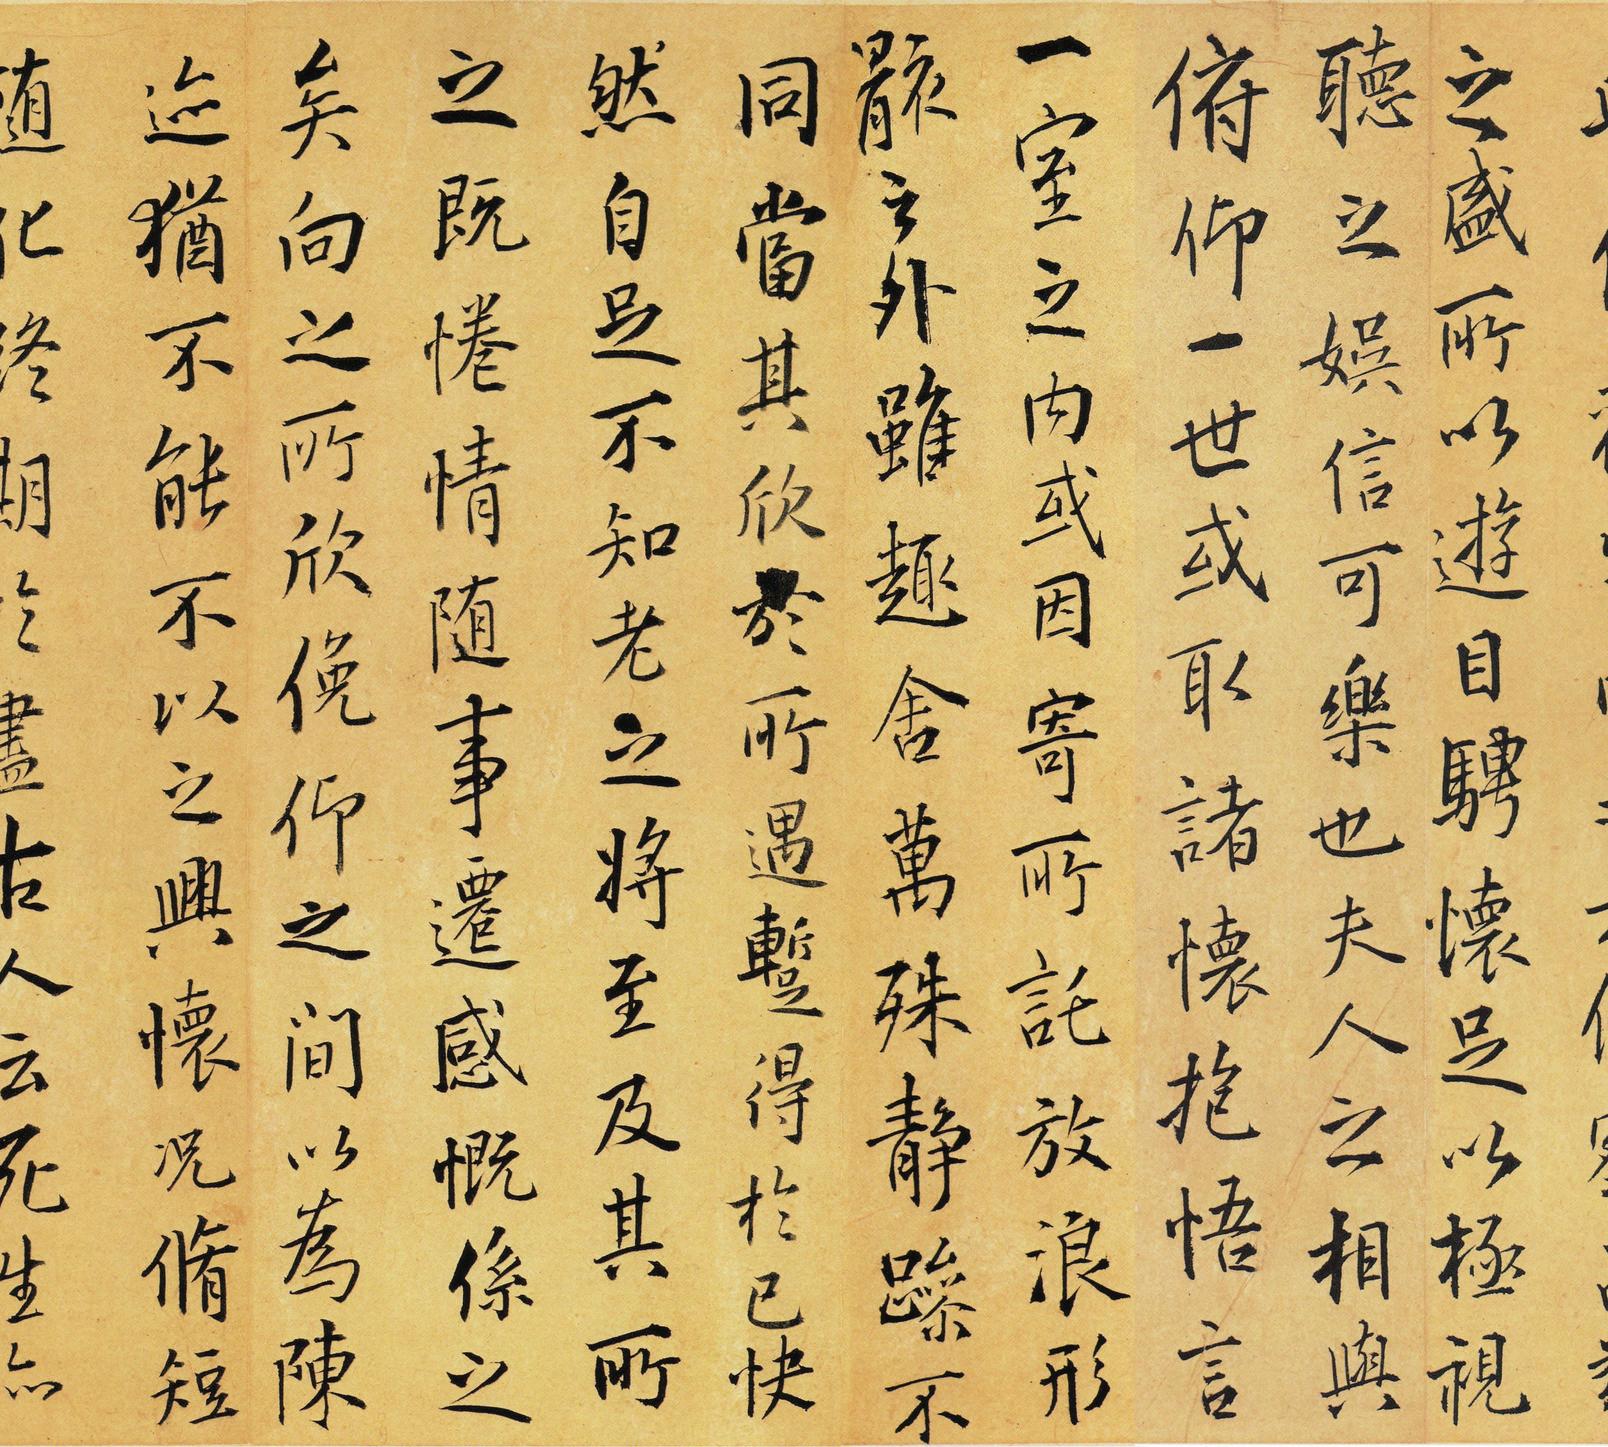 之盛所以遊目騁懷足以極視
聽之娛信可樂也夫人之相與
俯仰一世或取諸懷抱悟言
一室之內或因寄所託放浪形
骸之外雖趣舍萬殊靜躁不
同當其欣於所遇蹔得於己快
然自足不知老之將至及其所
之既惓情隨事遷感慨係之
矣向之所欣俛仰之間以為陳
迹猶不能不以之興懷况脩短
隨化終期於盡古人云死生亦